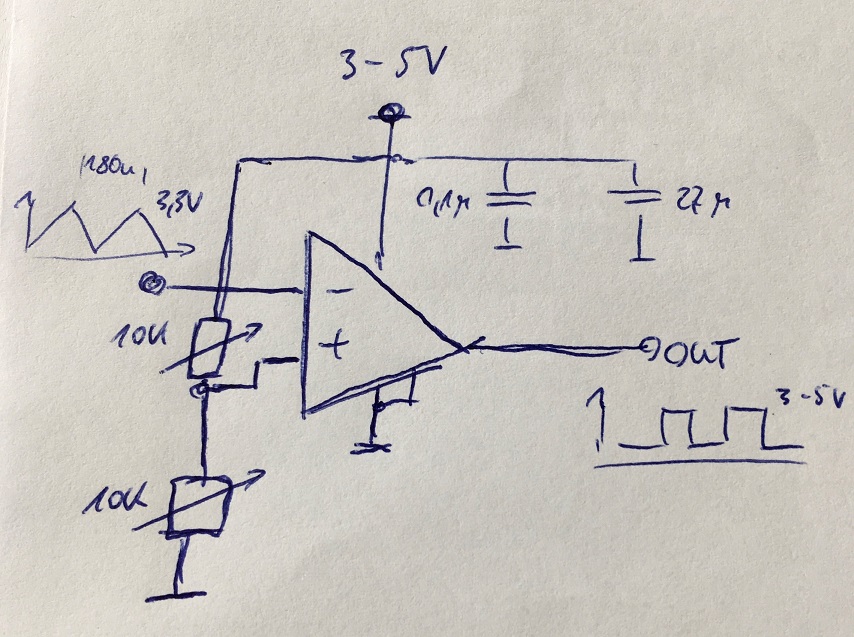 3-5V
3,3V
0,1µ
27µ
10K
-
+
OUT
3-5V
10K